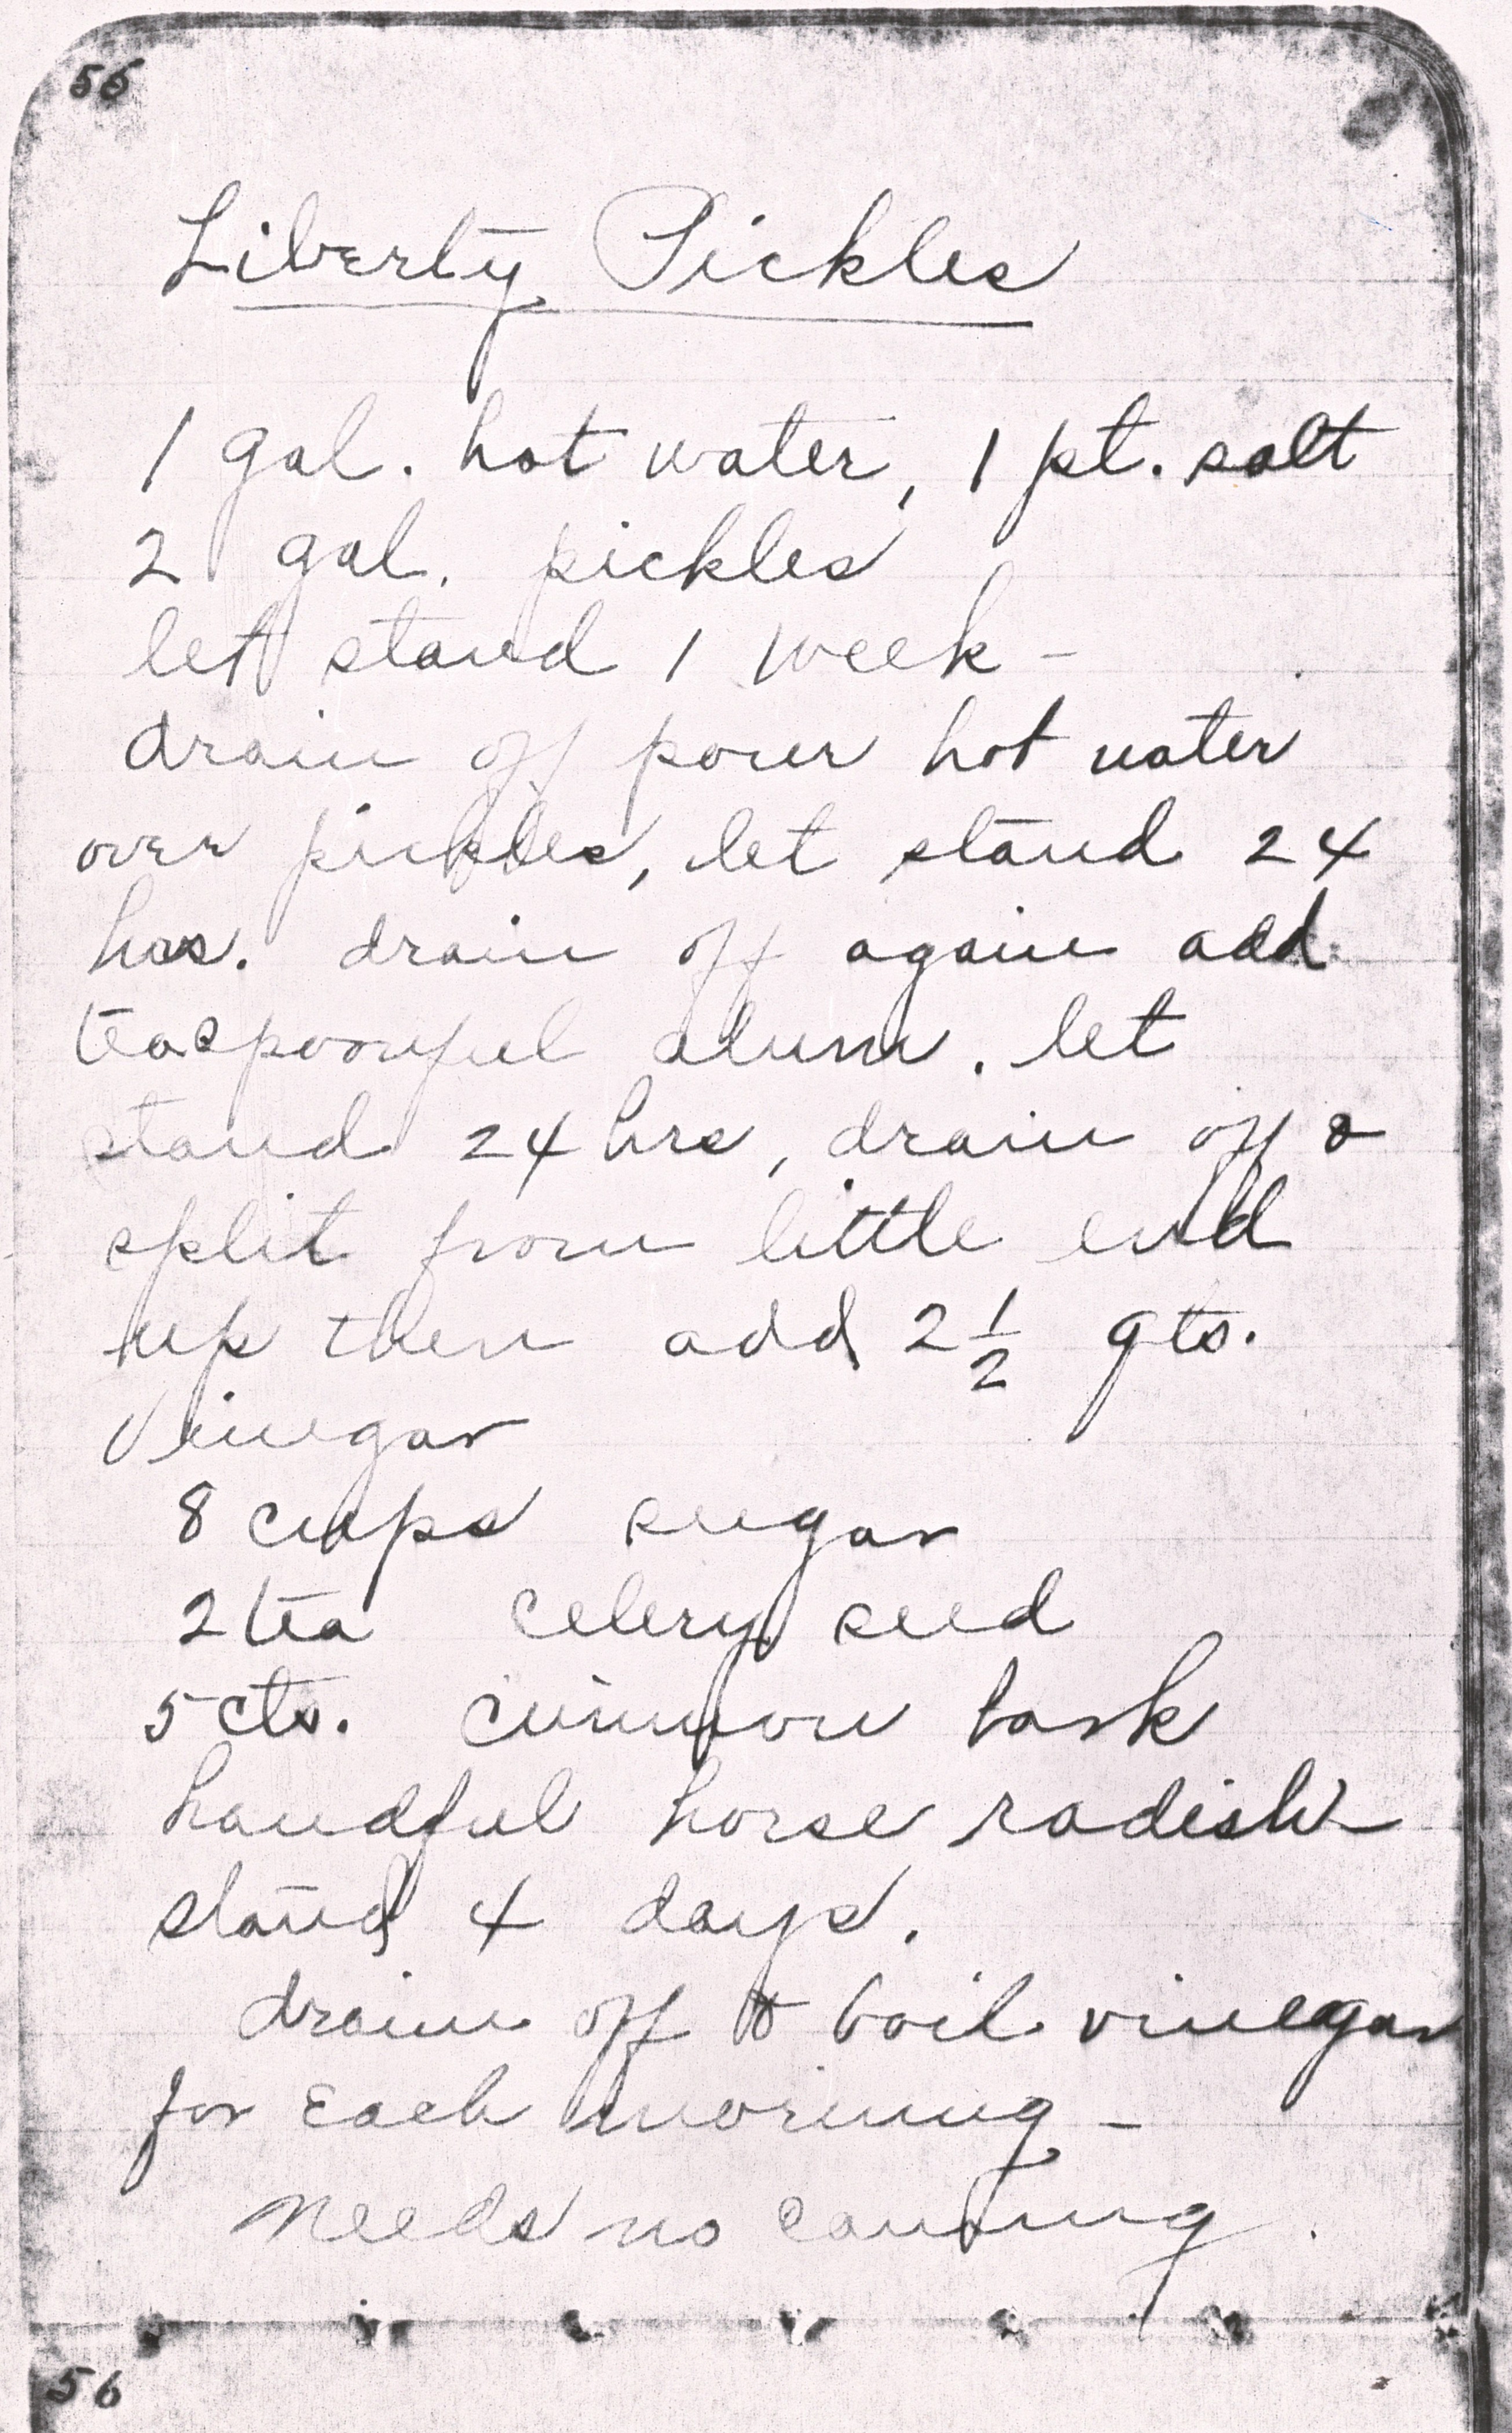 55
Liberty Pickles
1 gal. hot water, 1 pt. salt
2 gal. pickles
let stand 1 week -
drain off pour hot water
over pickles, let stand 24
hrs. drain off again add
teaspoonful alum. let
stand 24 hrs, drain off &
split from little end
up then add 2 1/2 qts.
Vinegar
8 cups sugar
2 tea celery seed
5 cts. cinnmon bark
handful horse radish
stand 4 days.
drain off & boil vinegar
for each morning -
Needs no canning.
56